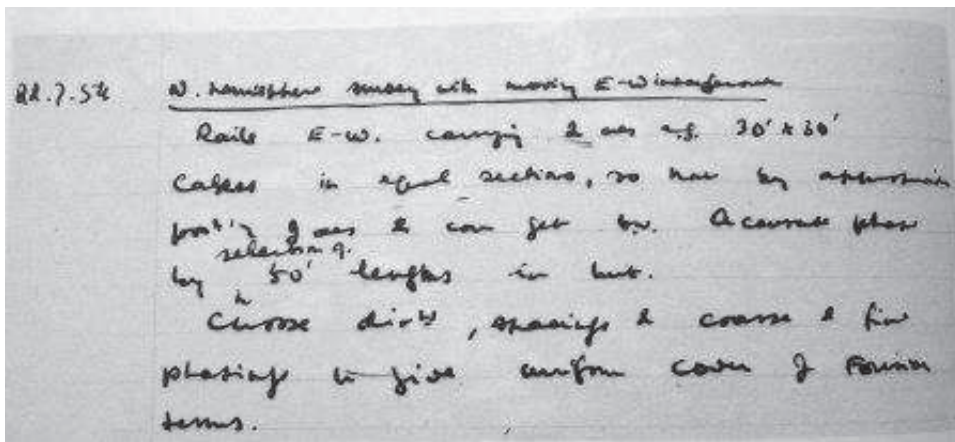 22.7.54 N. hemisphere survey with moving E-W interferometer
Rails E-W. carrying 2 aes e.g. 30' x 30'
Cables in equal sections, so that by appropriate
post'n of aes & can get Accurate phase
by selection of 50' lengths in hut.
Choose dirns, spacings & coarse & fine
phasings to give uniform cover of Fourier
terms.